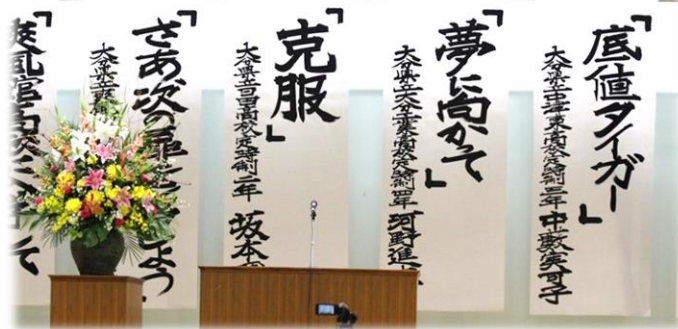 「底値タイガー」
大分県立中津東高校定時制三年 中藪実可子
「夢に向かって」
大分県立大分工業高校定時制四年 河野進
「克服」
大分県立日田高校定時制二年 坂本
「さあ次の しよう
大分県立
爽風館高校 て